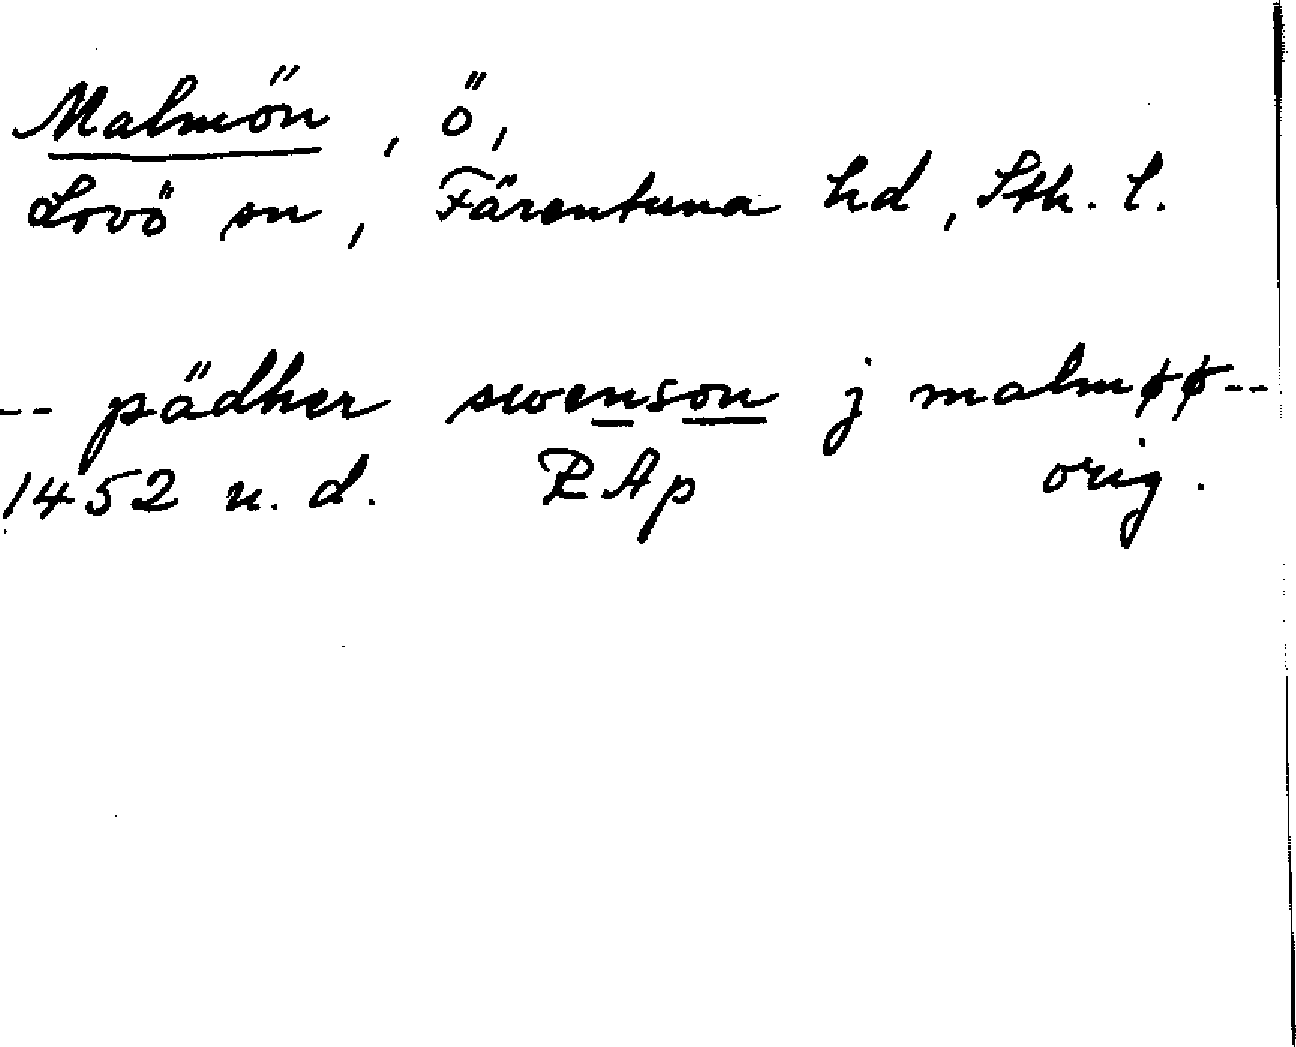 Malmön, ö,
Lovö sn, Färentuna hd, Sth. l.
-- pädher swenson j malmøø--
1452 u. d. RAp orig.